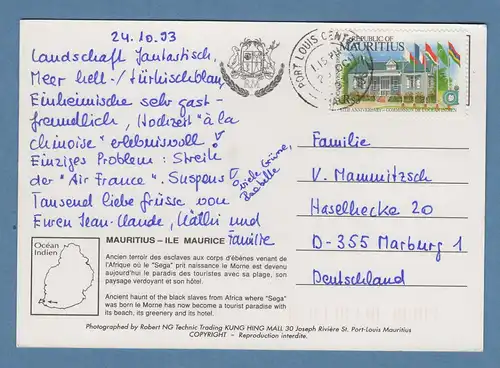 24.10.93
Landschaft fantastisch,
Meer hell-/türkischblau,
Einheimische sehr gast-
freundlich, "Hochzeit" à la
Chinoise" erlebnisvoll!
Einziges Problem: Streik
der "Air France". Suspens!
Tausend liebe Grüsse von
Euren Jean-Claude, Käthi und
Familie
Viele Grüsse,
Isabelle
PORT LOUIS CENTRAL
REPUBLIC OF
MAURITIUS
Familie
V. Mammitzsch
Haselhecke 20
D-355 Marburg 1
Deutschland
Océan
Indien
MAURITIUS - ILE MAURICE
Ancien terroir des esclaves aux corps d'ébènes venant de
l'Afrique où le "Sega" prit naissance le Morne est devenu
aujourd'hui le paradis des touristes avec sa plage, son
paysage verdoyant et son hôtel.
Ancient haunt of the black slaves from Africa where "Sega"
was born le Morne has now become a tourist paradise with
its beach, its greenery and its hotel.
Photographed by Robert NG Technic Trading KUNG HING MALL 30 Joseph Rivière St. Port-Louis Mauritius
COPYRIGHT - Reproduction interdite.